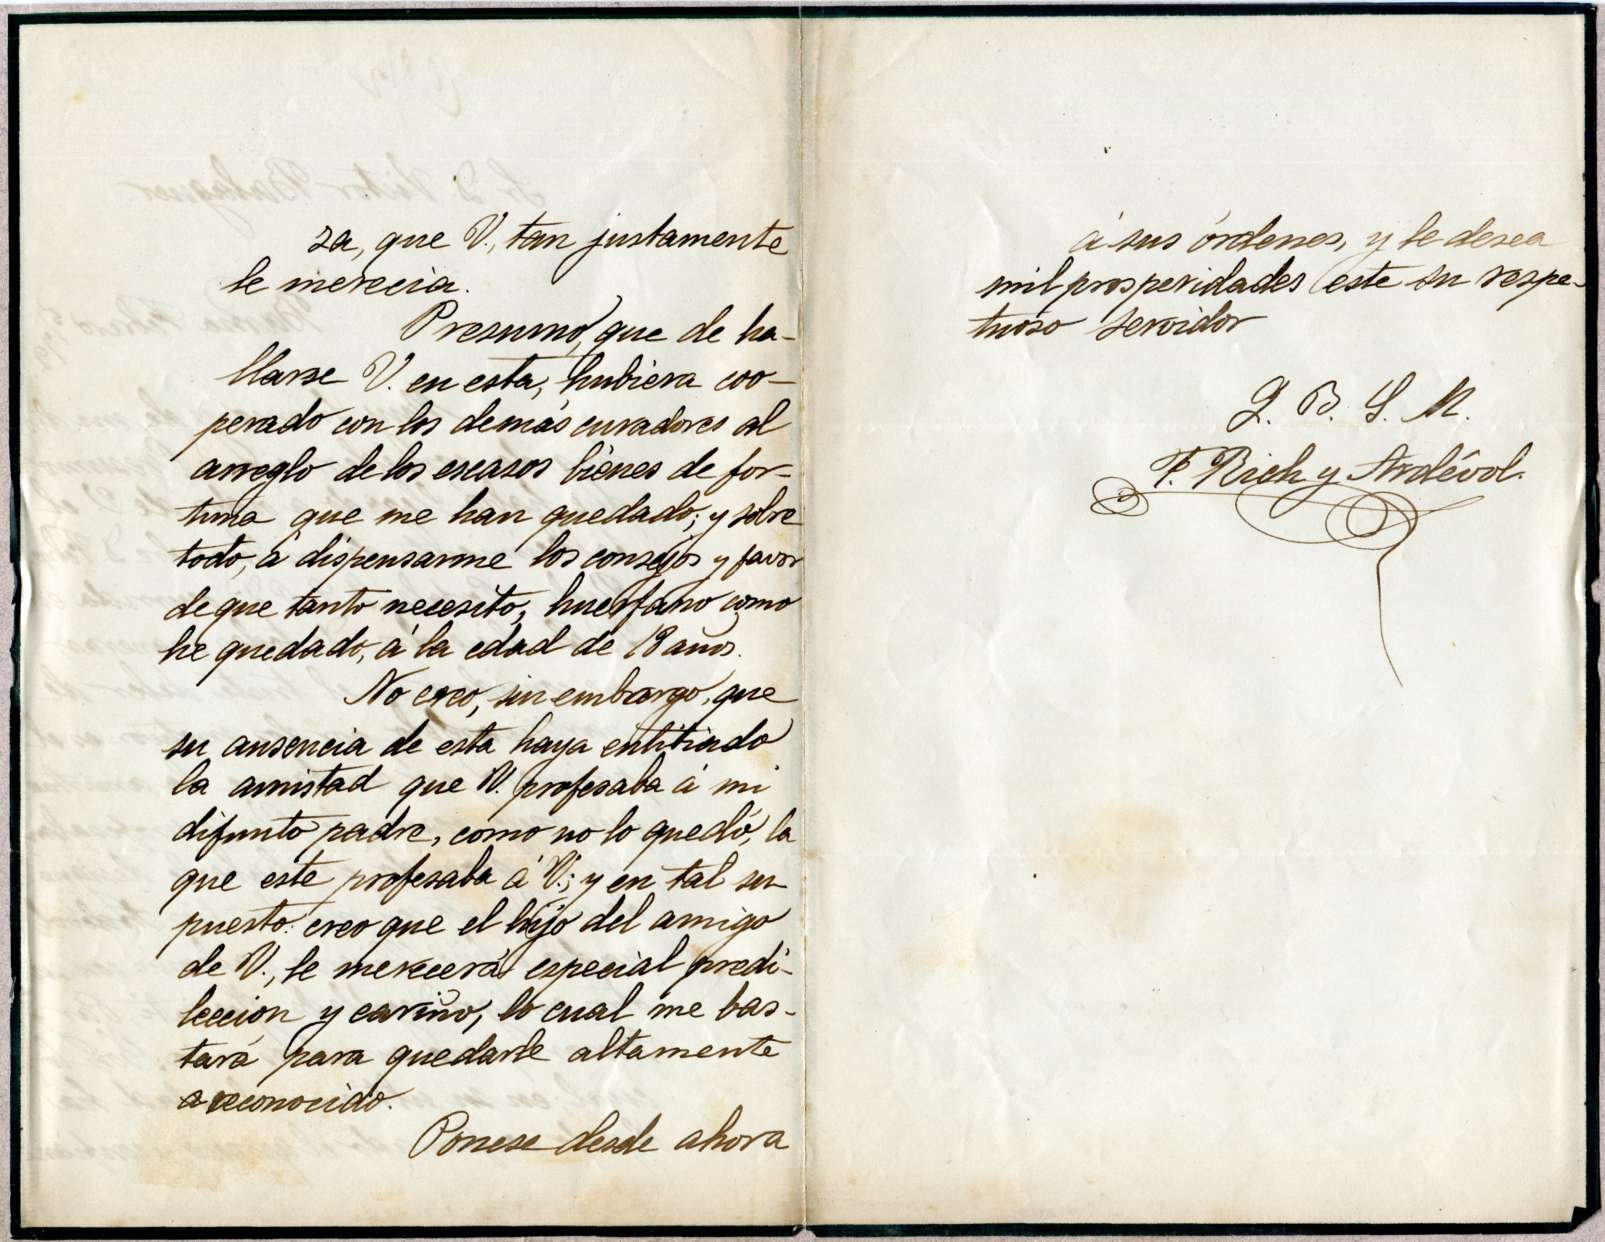 za, que V., tan justamente
le merecia.
Presumo, que de ha-
llarse V. en esta, hubiera coo-
perado con los demás curadores al
arreglo de los escasos bienes de for-
tuna que me han quedado; y sobre
todo, á dispensarme los consejos y favor
de que tanto necesito, huerfano como
he quedado, á la edad de 18 años.
No creo, sin embargo, que
su ausencia de esta haya entibiado
la amistad que V. profesaba á mi
difunto padre, como no lo quedó, la
que este profesaba á V.; y en tal su-
puesto: creo que el hijo del amigo
de V., le merecerá especial predi-
leccion y cariño, lo cual me bas-
tará para quedarle altamente
reconocido.
Ponese desde ahora
á sus órdenes, y le desea
mil prosperidades este su respe-
tuoso servidor
Q. B. S. M.
F. Rich y Andévol.
Sr D Victor Balaguer